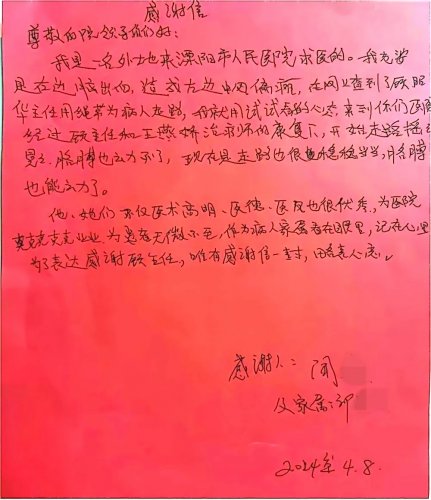 感谢信
尊敬的院领子们好:
我是一名外土也来溧阳市人民医院求医的。我老婆
是右边脑出血,造成左边中风偏瘫,在网上查到了顾
华主任用绿草为病人走路,我就用试试看的心态来到你们医院
经过顾主任和王燕娇治疗师的康复下,开始走路摇
晃晃,胳膊也么力不了,现在是走路也很稳稳当当,胳膊
也能么力了。
他、她们不仅医术高明、医德、医风也很优秀,为医院
克克业业为患者无微不至,作为病人家属看在眼里,记在心里
为了表达感谢顾主任,唯有感谢信一封,略表心意。
感谢人:闻
及家属:邹
2024年4.8.